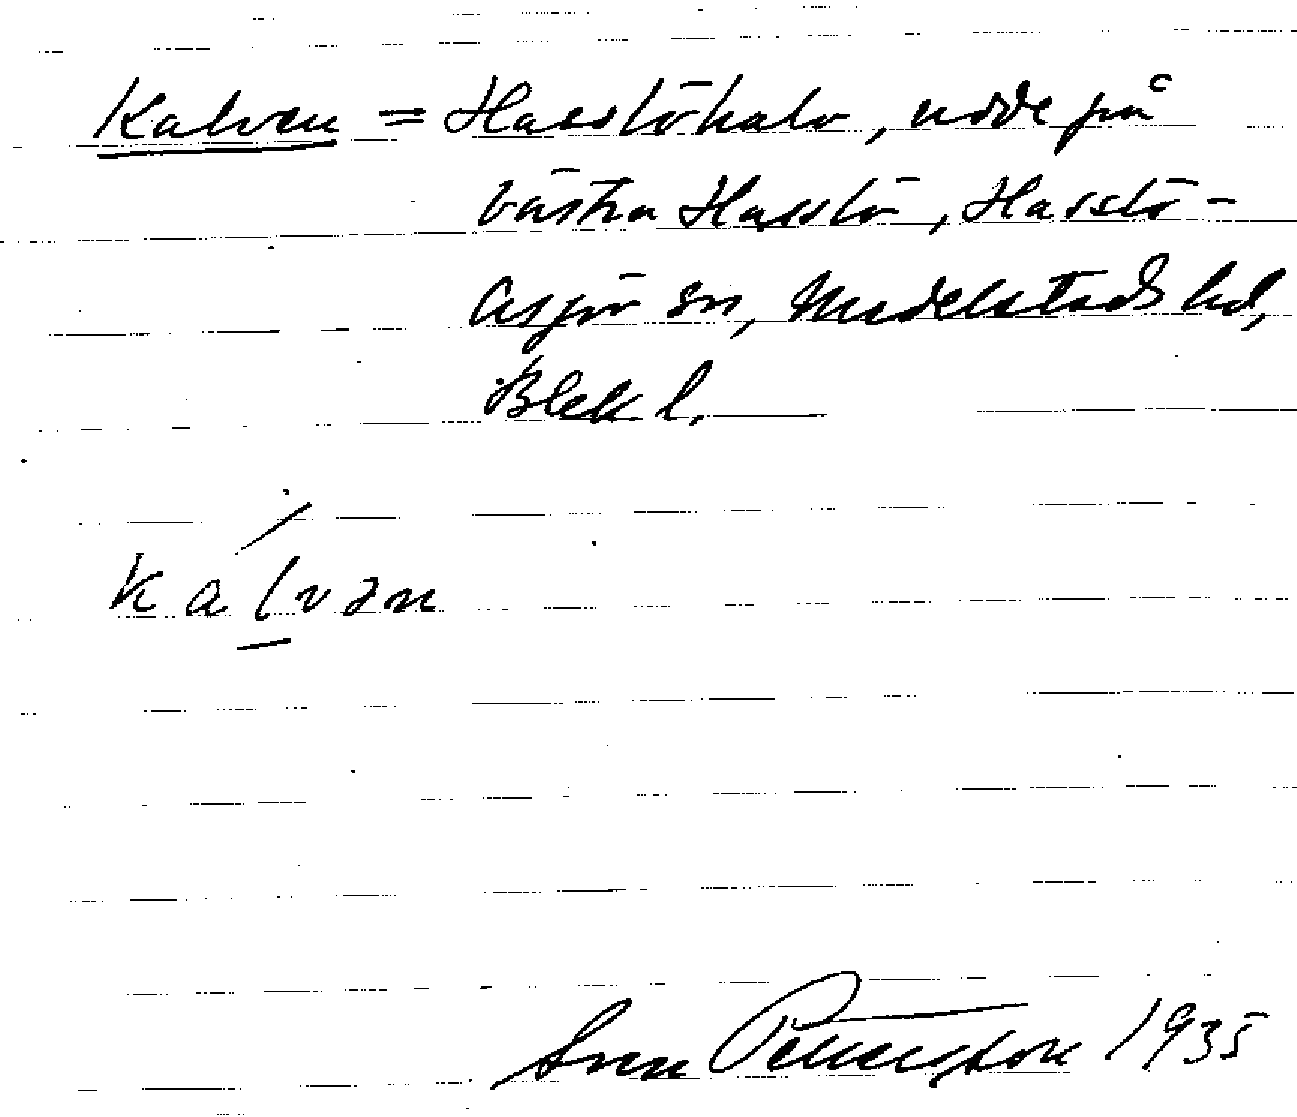 Kalven = Hasslökalv, udde på
västra Hasslö, Hasslö-
Aspö sn, Medelstads hd,
Blek l.
kalvən
Sven Pettersson 1935